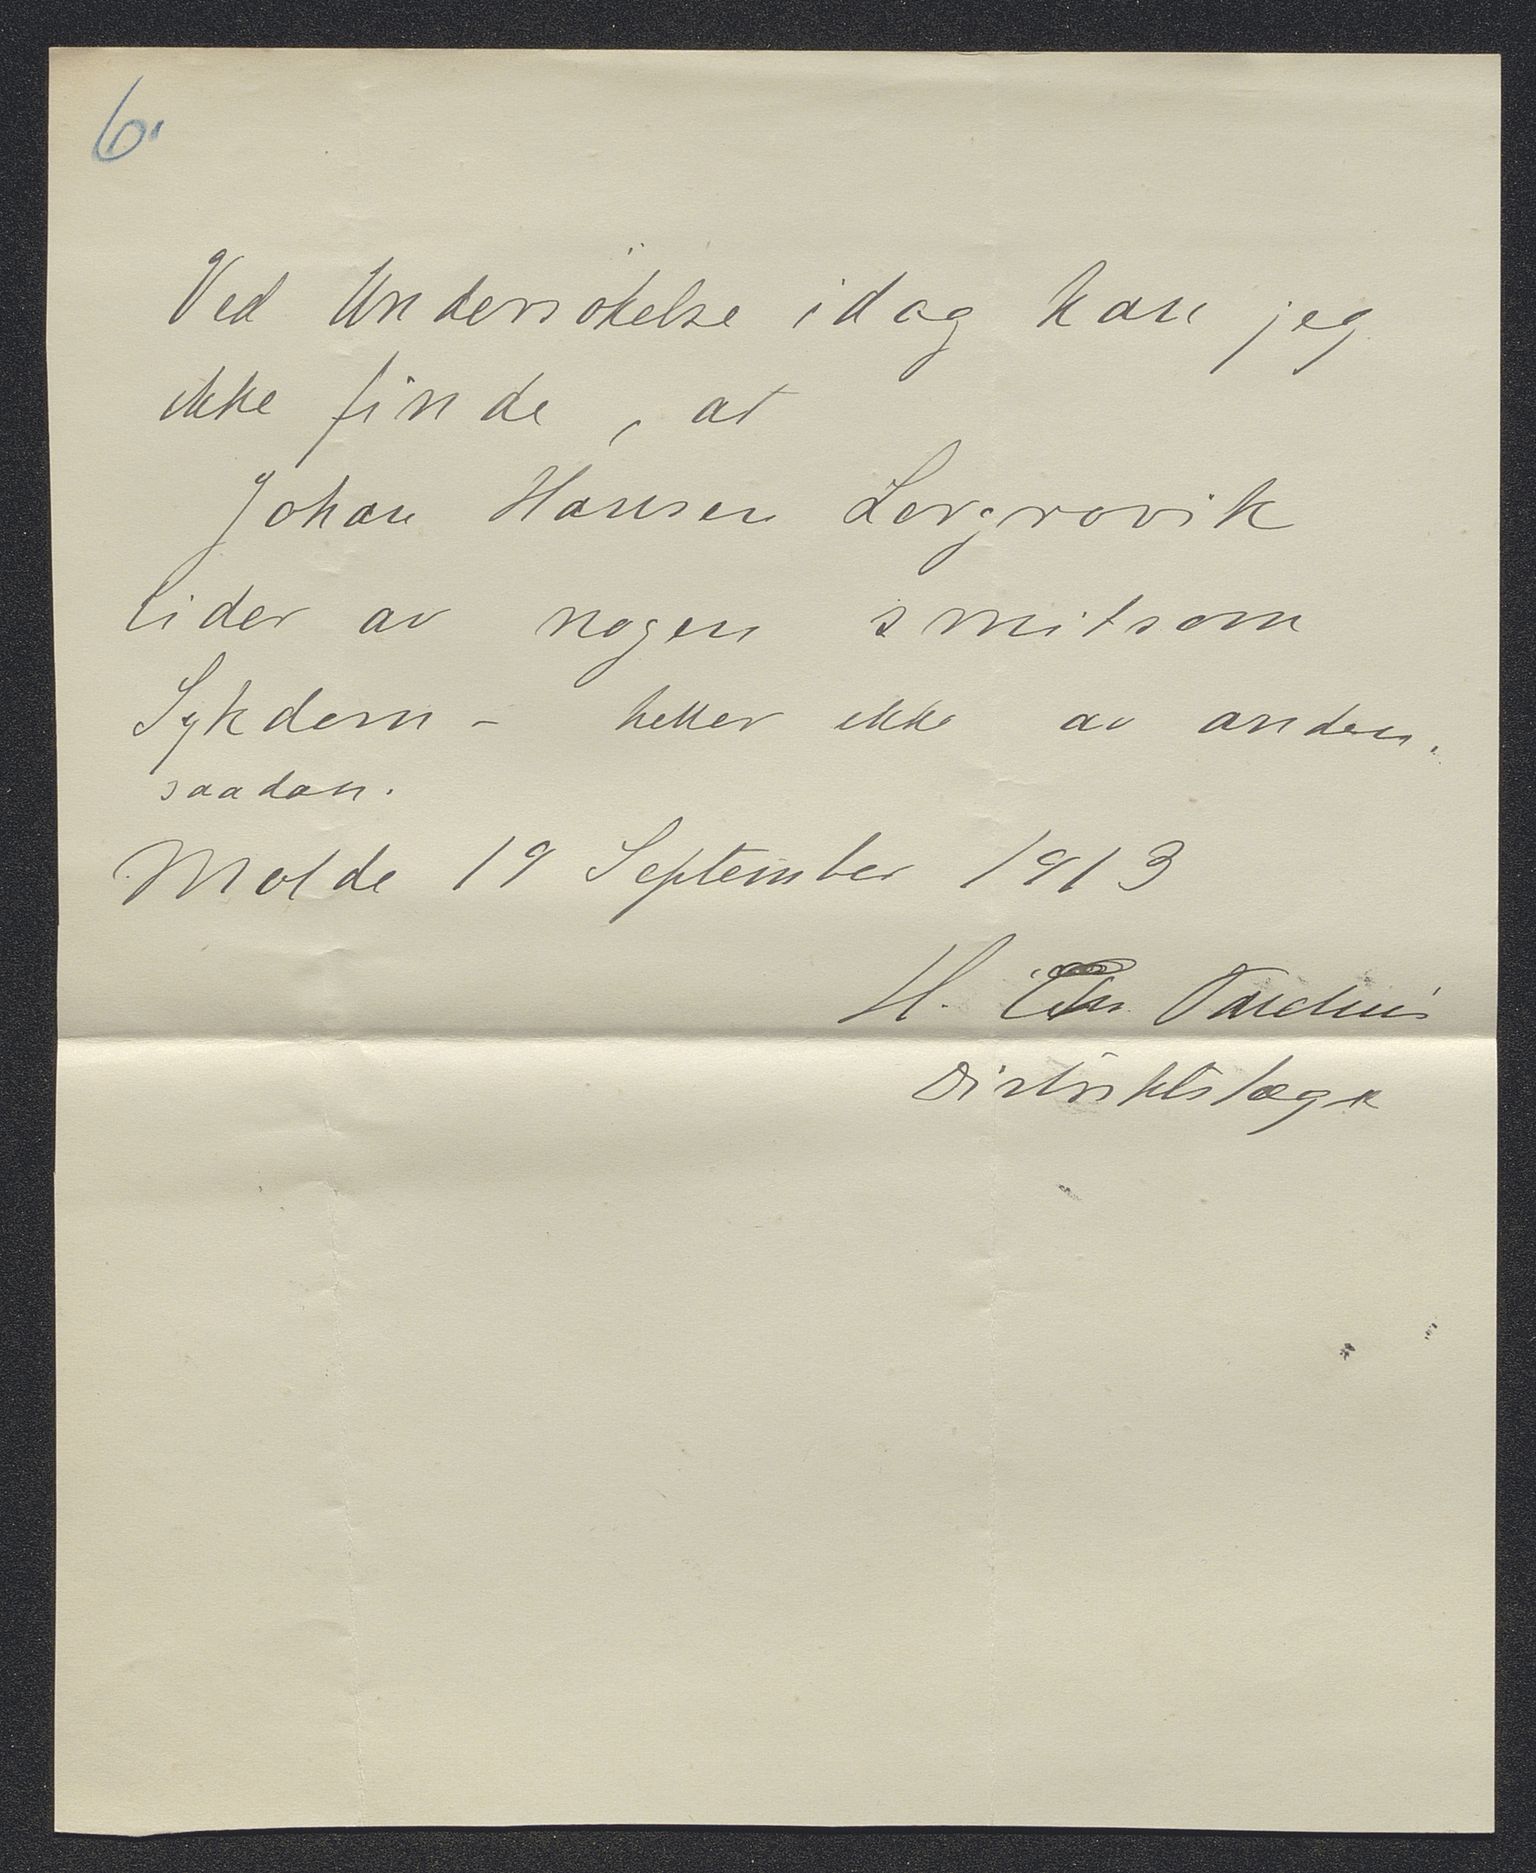 6.
Ved Undersökelse idag kan jeg
ikke finde, at
Johan Hansen Lergrovik
lider av nogen smitsom
Sykdom – heller ikke av anden.
saadan.
Molde 19 September 1913
H. Chr.
Distriktslæge